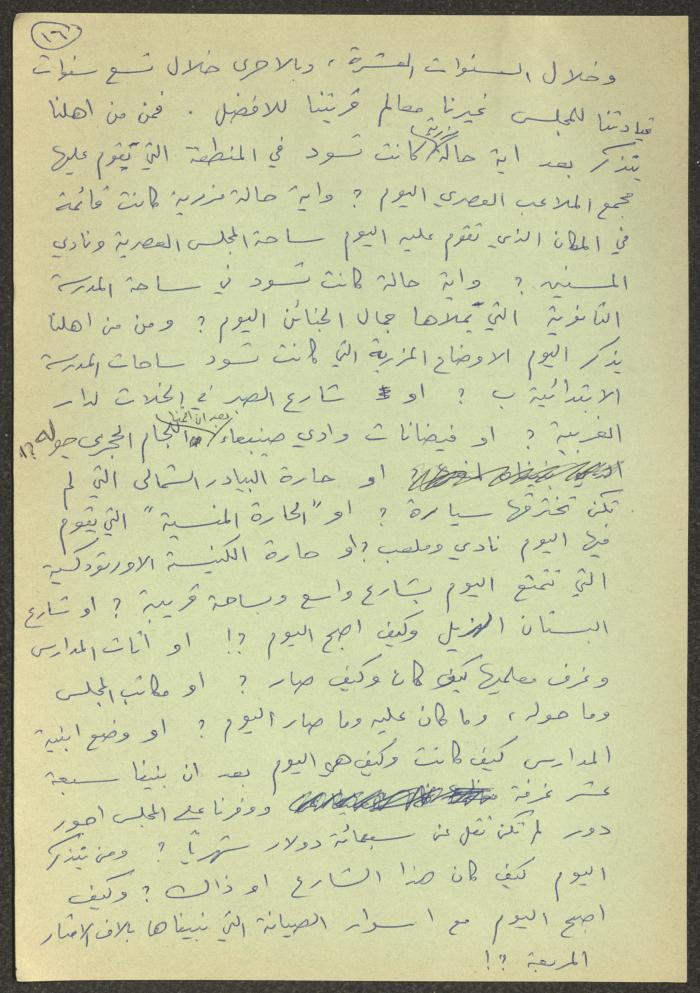 ١٦
وخلال السنوات العشرة، وبالاحرى خلال تسع سنوات
قيادتنا للمجلس غيرنا معالم قريتنا للافضل. فمن من اهلنا
يتذكر بعد اية حالة مزرية كانت تسود في المنطقة التي يقوم عليها
مجمع الملاعب العصري اليوم؟ واية حالة مزرية كانت قائمة
في المكان الذي تقوم عليه اليوم ساحة المجلس العصرية ونادي
المسنين؟ واية حالة كانت تسود في ساحة المدرسة
الثانوية التي يملاها جمال الجنائن اليوم؟ ومن من اهلنا
يذكر اليوم الاوضاع المزرية التي كانت تسود ساحات المدرسة
الابتدائية ب؟ او شارع الصدر في الخلات لدار
الغربية؟ او فيضانات وادي بعد ان الحجري حوله؟!
او حارة البيادر الشمالي التي لم
تكن تخترقها سيارة؟ او "الحارة المنسية" التي يقوم
فيها اليوم نادي وملعب؟ او حارة الكنيسة الاورثوذكسية
التي تتمتع اليوم بشارع واسع وبساحة قريبة؟ او شارع
البستان الهزيل وكيف اصبح اليوم؟! او اثاث المدارس
وغرف معلميها كيف كان وكيف صار؟ او مكاتب المجلس
وما حوله، وما كان عليه وما صار اليوم؟ او وضع ابنية
المدارس كيف كانت وكيف هي اليوم بعد ان بنينا سبعة
عشر غرفة ووفرنا على المجلس اجور
دور لم تكن تقل عن سبعمائة دولار شهريًا؟ ومن يتذكر
اليوم كيف كان هذا الشارع او ذاك؟ وكيف
اصبح اليوم مع اسوار الصيانة التي بنيناها بالاف الامتار
المربعة؟!